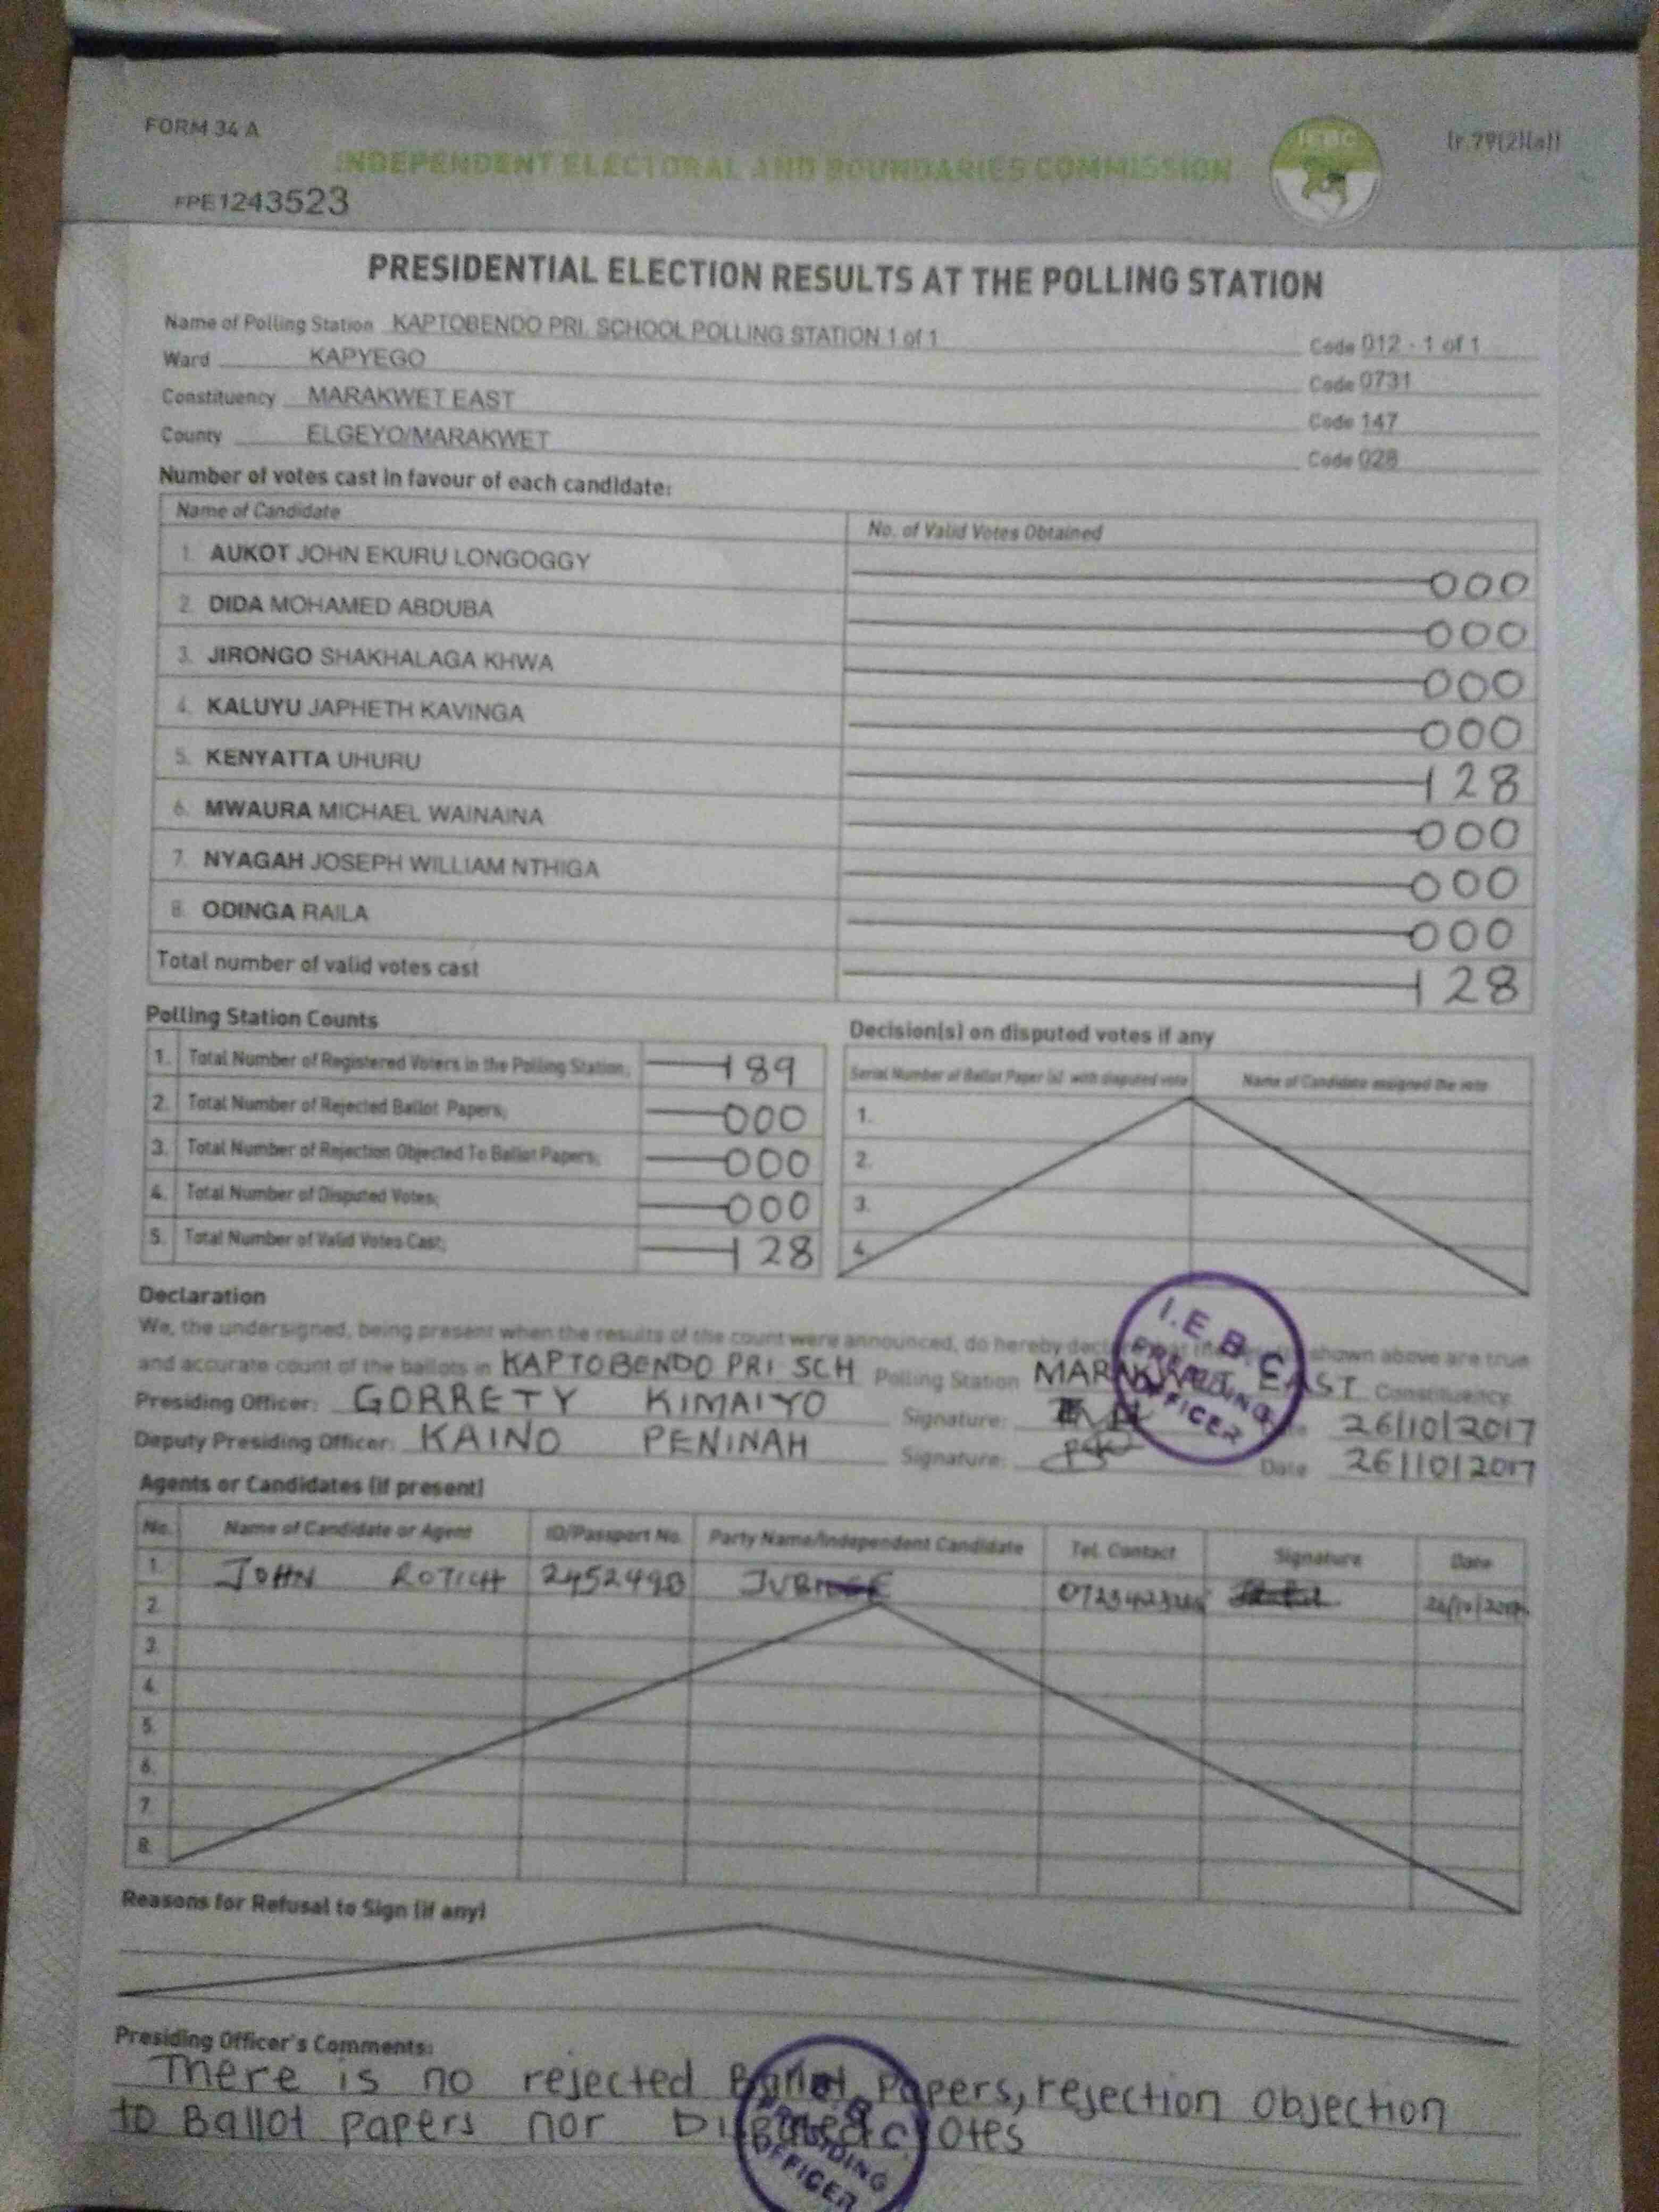 FORM 34 A
(r.79(2)(a))
INDEPENDENT ELECTORAL AND BOUNDARIES COMMISSION
IEBC
FPE1243523
PRESIDENTIAL ELECTION RESULTS AT THE POLLING STATION
Name of Polling Station KAPTOBENDO PRI. SCHOOL POLLING STATION 1 of 1 Code 012 - 1 of 1
Ward KAPYEGO Code 0731
Constituency MARAKWET EAST Code 147
County ELGEYO/MARAKWET Code 028
Number of votes cast in favour of each candidate:
Name of Candidate No. of Valid Votes Obtained
1. AUKOT JOHN EKURU LONGOGGY 000
2. DIDA MOHAMED ABDUBA 000
3. JIRONGO SHAKHALAGA KHWA 000
4. KALUYU JAPHETH KAVINGA 000
5. KENYATTA UHURU 128
6. MWAURA MICHAEL WAINAINA 000
7. NYAGAH JOSEPH WILLIAM NTHIGA 000
8. ODINGA RAILA 000
Total number of valid votes cast 128
Polling Station Counts
1. Total Number of Registered Voters in the Polling Station; 189
2. Total Number of Rejected Ballot Papers; 000
3. Total Number of Rejection Objected To Ballot Papers; 000
4. Total Number of Disputed Votes; 000
5. Total Number of Valid Votes Cast; 128
Decision(s) on disputed votes if any
Serial Number of Ballot Paper (s) with disputed vote Name of Candidate assigned the vote
1.
2.
3.
4.
Declaration
We, the undersigned, being present when the results of the count were announced, do hereby shown above are true
and accurate count of the ballots in KAPTOBENDO PRI SCH Polling Station MARAKWET EAST Constituency
Presiding Officer: GORRETY KIMAIYO Signature: Date 26/10/2017
Deputy Presiding Officer: KAINO PENINAH Signature: Date 26/10/2017
I.E.B.C PRESIDING OFFICER
Agents or Candidates (if present)
No. Name of Candidate or Agent ID/Passport No. Party Name/Independent Candidate Tel. Contact Signature Date
1. JOHN ROTICH 26/10/2017
2.
3.
4.
5.
6.
7.
8.
Reasons for Refusal to Sign (if any)
Presiding Officer's Comments:
There is no rejected Ballot Papers, rejection Objection
to Ballot papers nor Disputed votes
PRESIDING OFFICER